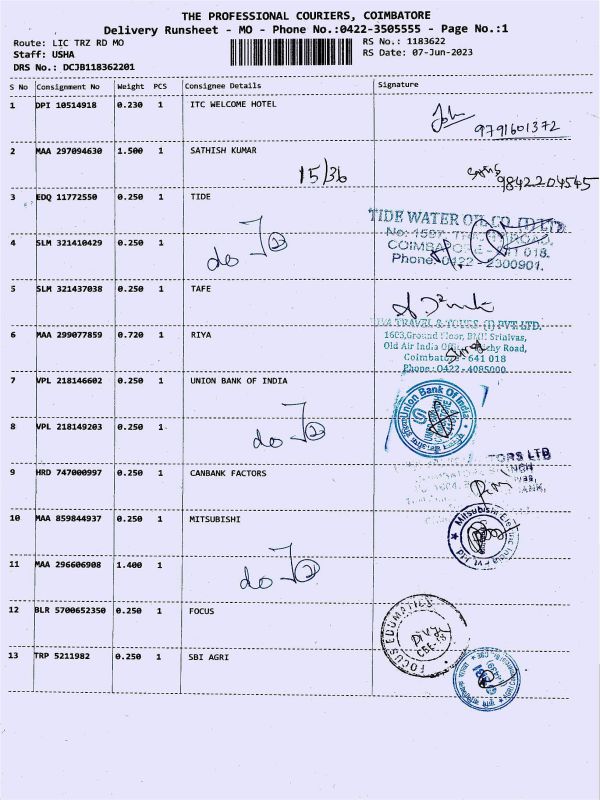 THE PROFESSIONAL COURIERS, COIMBATORE
Delivery Runsheet - MO - Phone No.:0422-3505555 - Page No.:1
Route: LIC TRZ RD MO
RS No.: 1183622
Staff: USHA
RS Date: 07-Jun-2023
DRS No.: DCJB118362201
S No Consignment No Weight PCS Consignee Details Signature
1 DPI 10514918 0.230 1 ITC WELCOME HOTEL
John
9791601372
2 MAA 297094630 1.500 1 SATHISH KUMAR
15/36
9842204545
3 EDQ 11772550 0.250 1 TIDE
TIDE WATER OIL CO. (I) LTD
No: 1597, ROAD,
4 SLM 321410429 0.250 1
do 2
COIMBATORE - 641 018.
Phone: 0422 - 2300901.
5 SLM 321437038 0.250 1 TAFE
6 MAA 299077859 0.720 1 RIYA
RIYA TRAVEL & TOURS (I) PVT. LTD.
1603, Ground Floor, BMH Srinivas,
Old Air India Office, Trichy Road,
Coimbatore - 641 018
Phone: 0422 - 4085000
7 VPL 218146602 0.250 1 UNION BANK OF INDIA
Union Bank Of India
8 VPL 218149203 0.250 1
do 2
9 HRD 747000997 0.250 1 CANBANK FACTORS
TORS LTD
10 MAA 859844937 0.250 1 MITSUBISHI
Mitsubishi Electric India Pvt Ltd
11 MAA 296606908 1.400 1
do 2
12 BLR 5700652350 0.250 1 FOCUS
FOCUS EDUMATICS
CBE-18
13 TRP 5211982 0.250 1 SBI AGRI
SBI